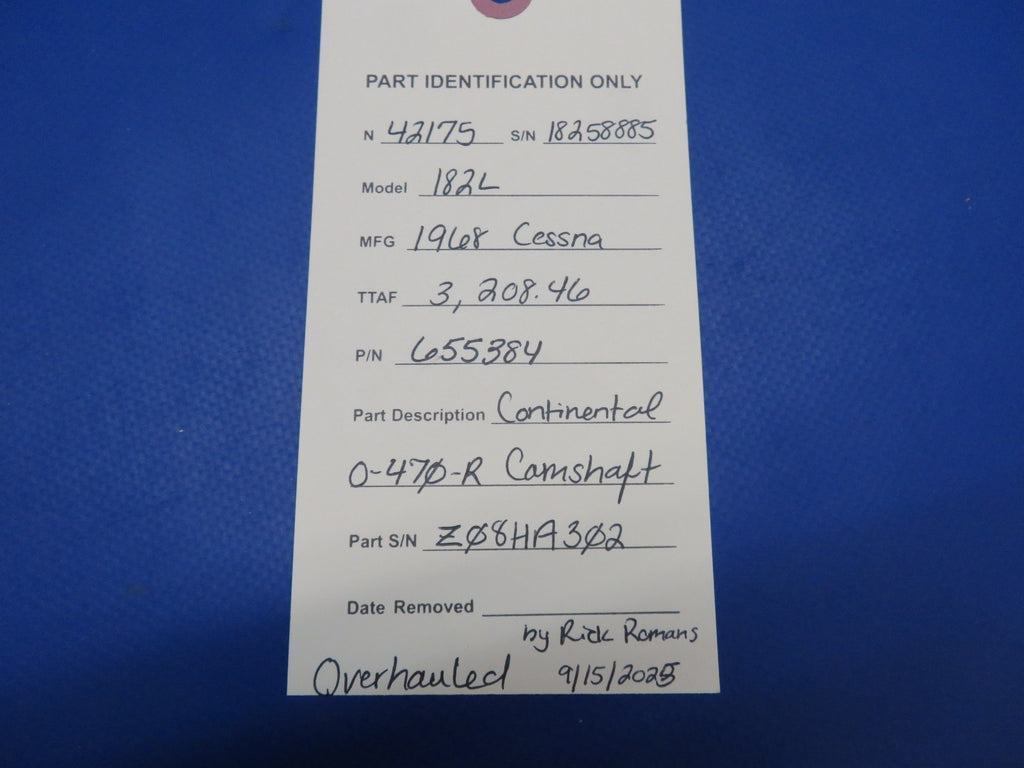 PART IDENTIFICATION ONLY
N 42175 S/N 18258885
Model 182L
MFG 1968 Cessna
TTAF 3,208.46
P/N 655384
Part Description Continental
O-470-R Camshaft
Part S/N Z08HA302
Date Removed
by Rick Romans
Overhauled 9/15/2025